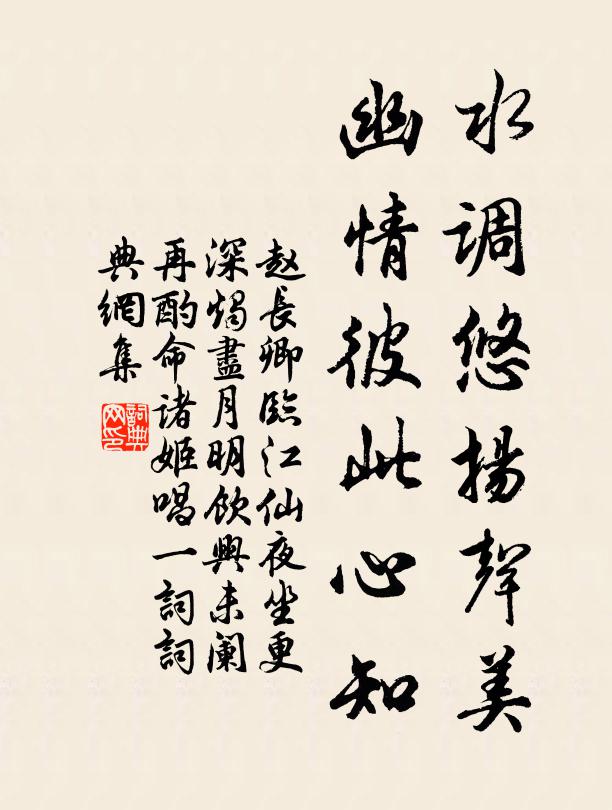 水调悠揚聲美
幽情彼此心知
赵長卿臨江仙夜坐更
深燭盡月明飲興未闌
再酌命诸姬唱一詞詞
典網集
詞典
网印